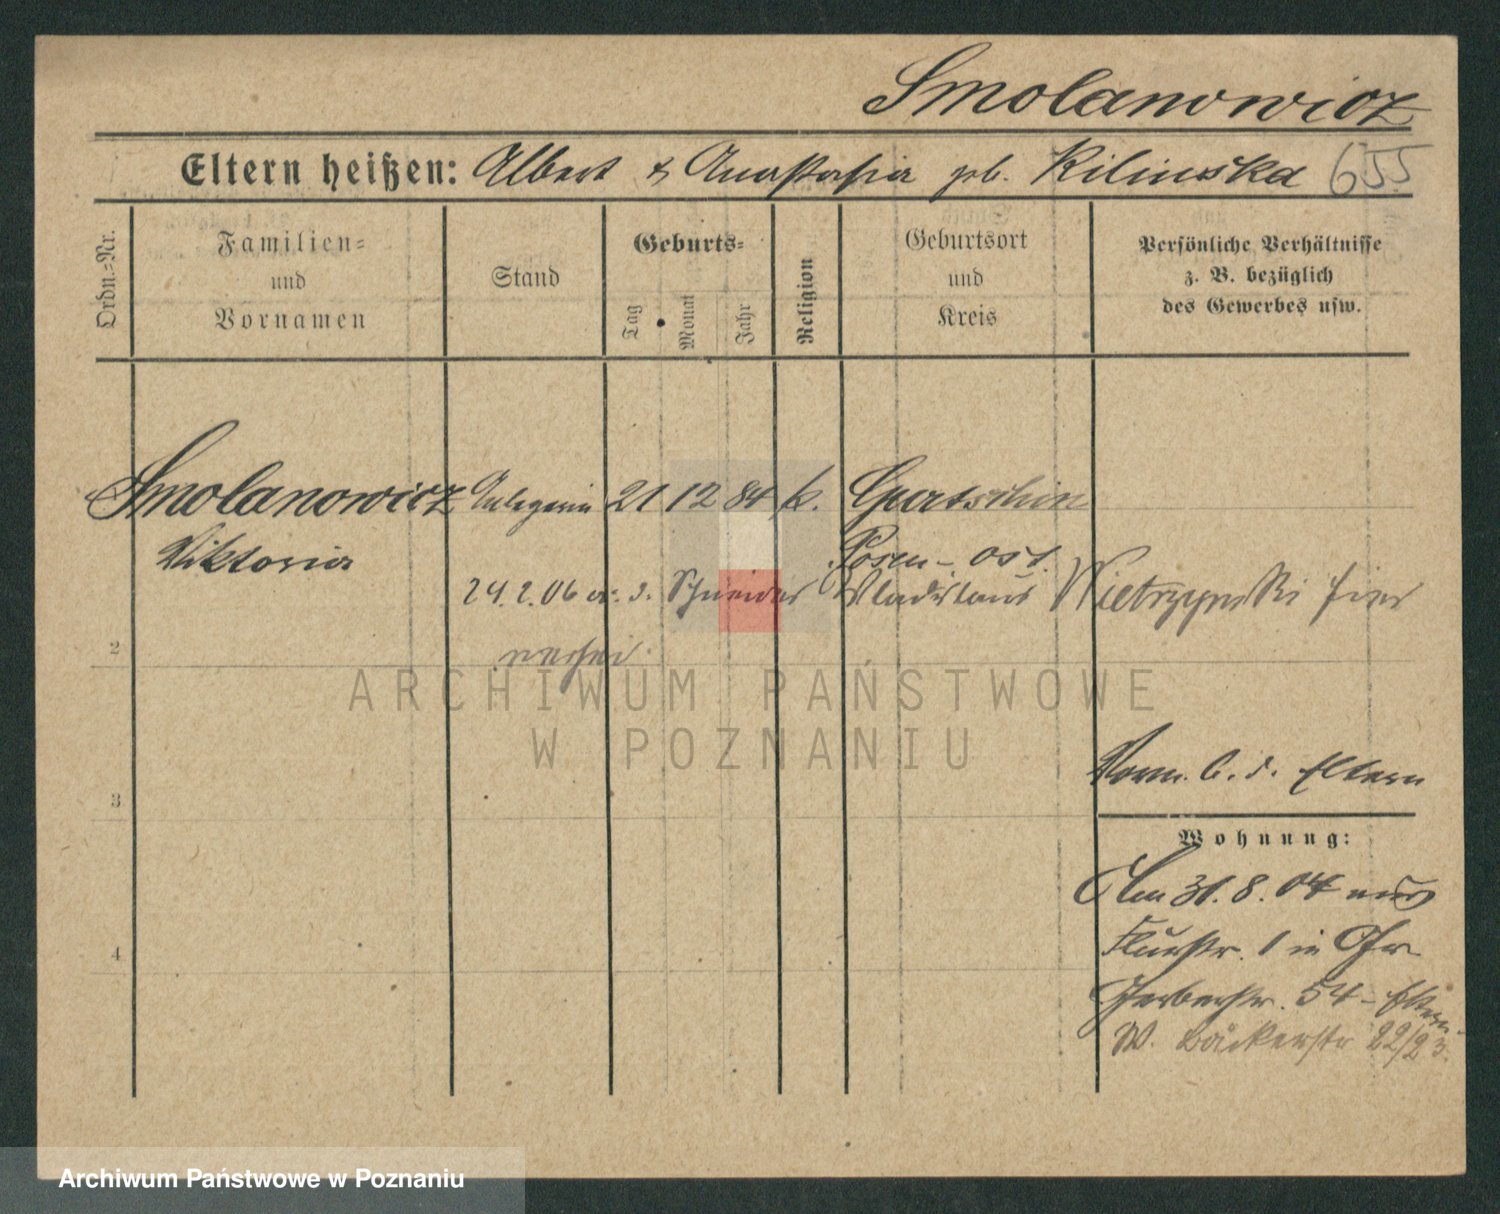 Smolanowicz
Eltern heißen: Albert & Anastasia geb. Kilinska 655
Ordn.-Nr.
Familien-
und
Vornamen
Stand
Geburts-
Tag
Monat
Jahr
Religion
Geburtsort
und
Kreis
Persönliche Verhältnisse
z. B. bezüglich
des Gewerbes usw.
Smolanowicz 21 12 84 k. Gurtschin
Viktoria Posen-Ost.
24.2.06 Schneider Wladislaus Wietrzynski hier
2
verheir.
Vorm. b. d. Eltern
3
Wohnung:
Am 31.8.04 aus
Flurstr. 1 in
4
Gerberstr. 54 - Eltern
W. Bäckerstr 22/23.
ARCHIWUM PAŃSTWOWE
W POZNANIU
Archiwum Państwowe w Poznaniu